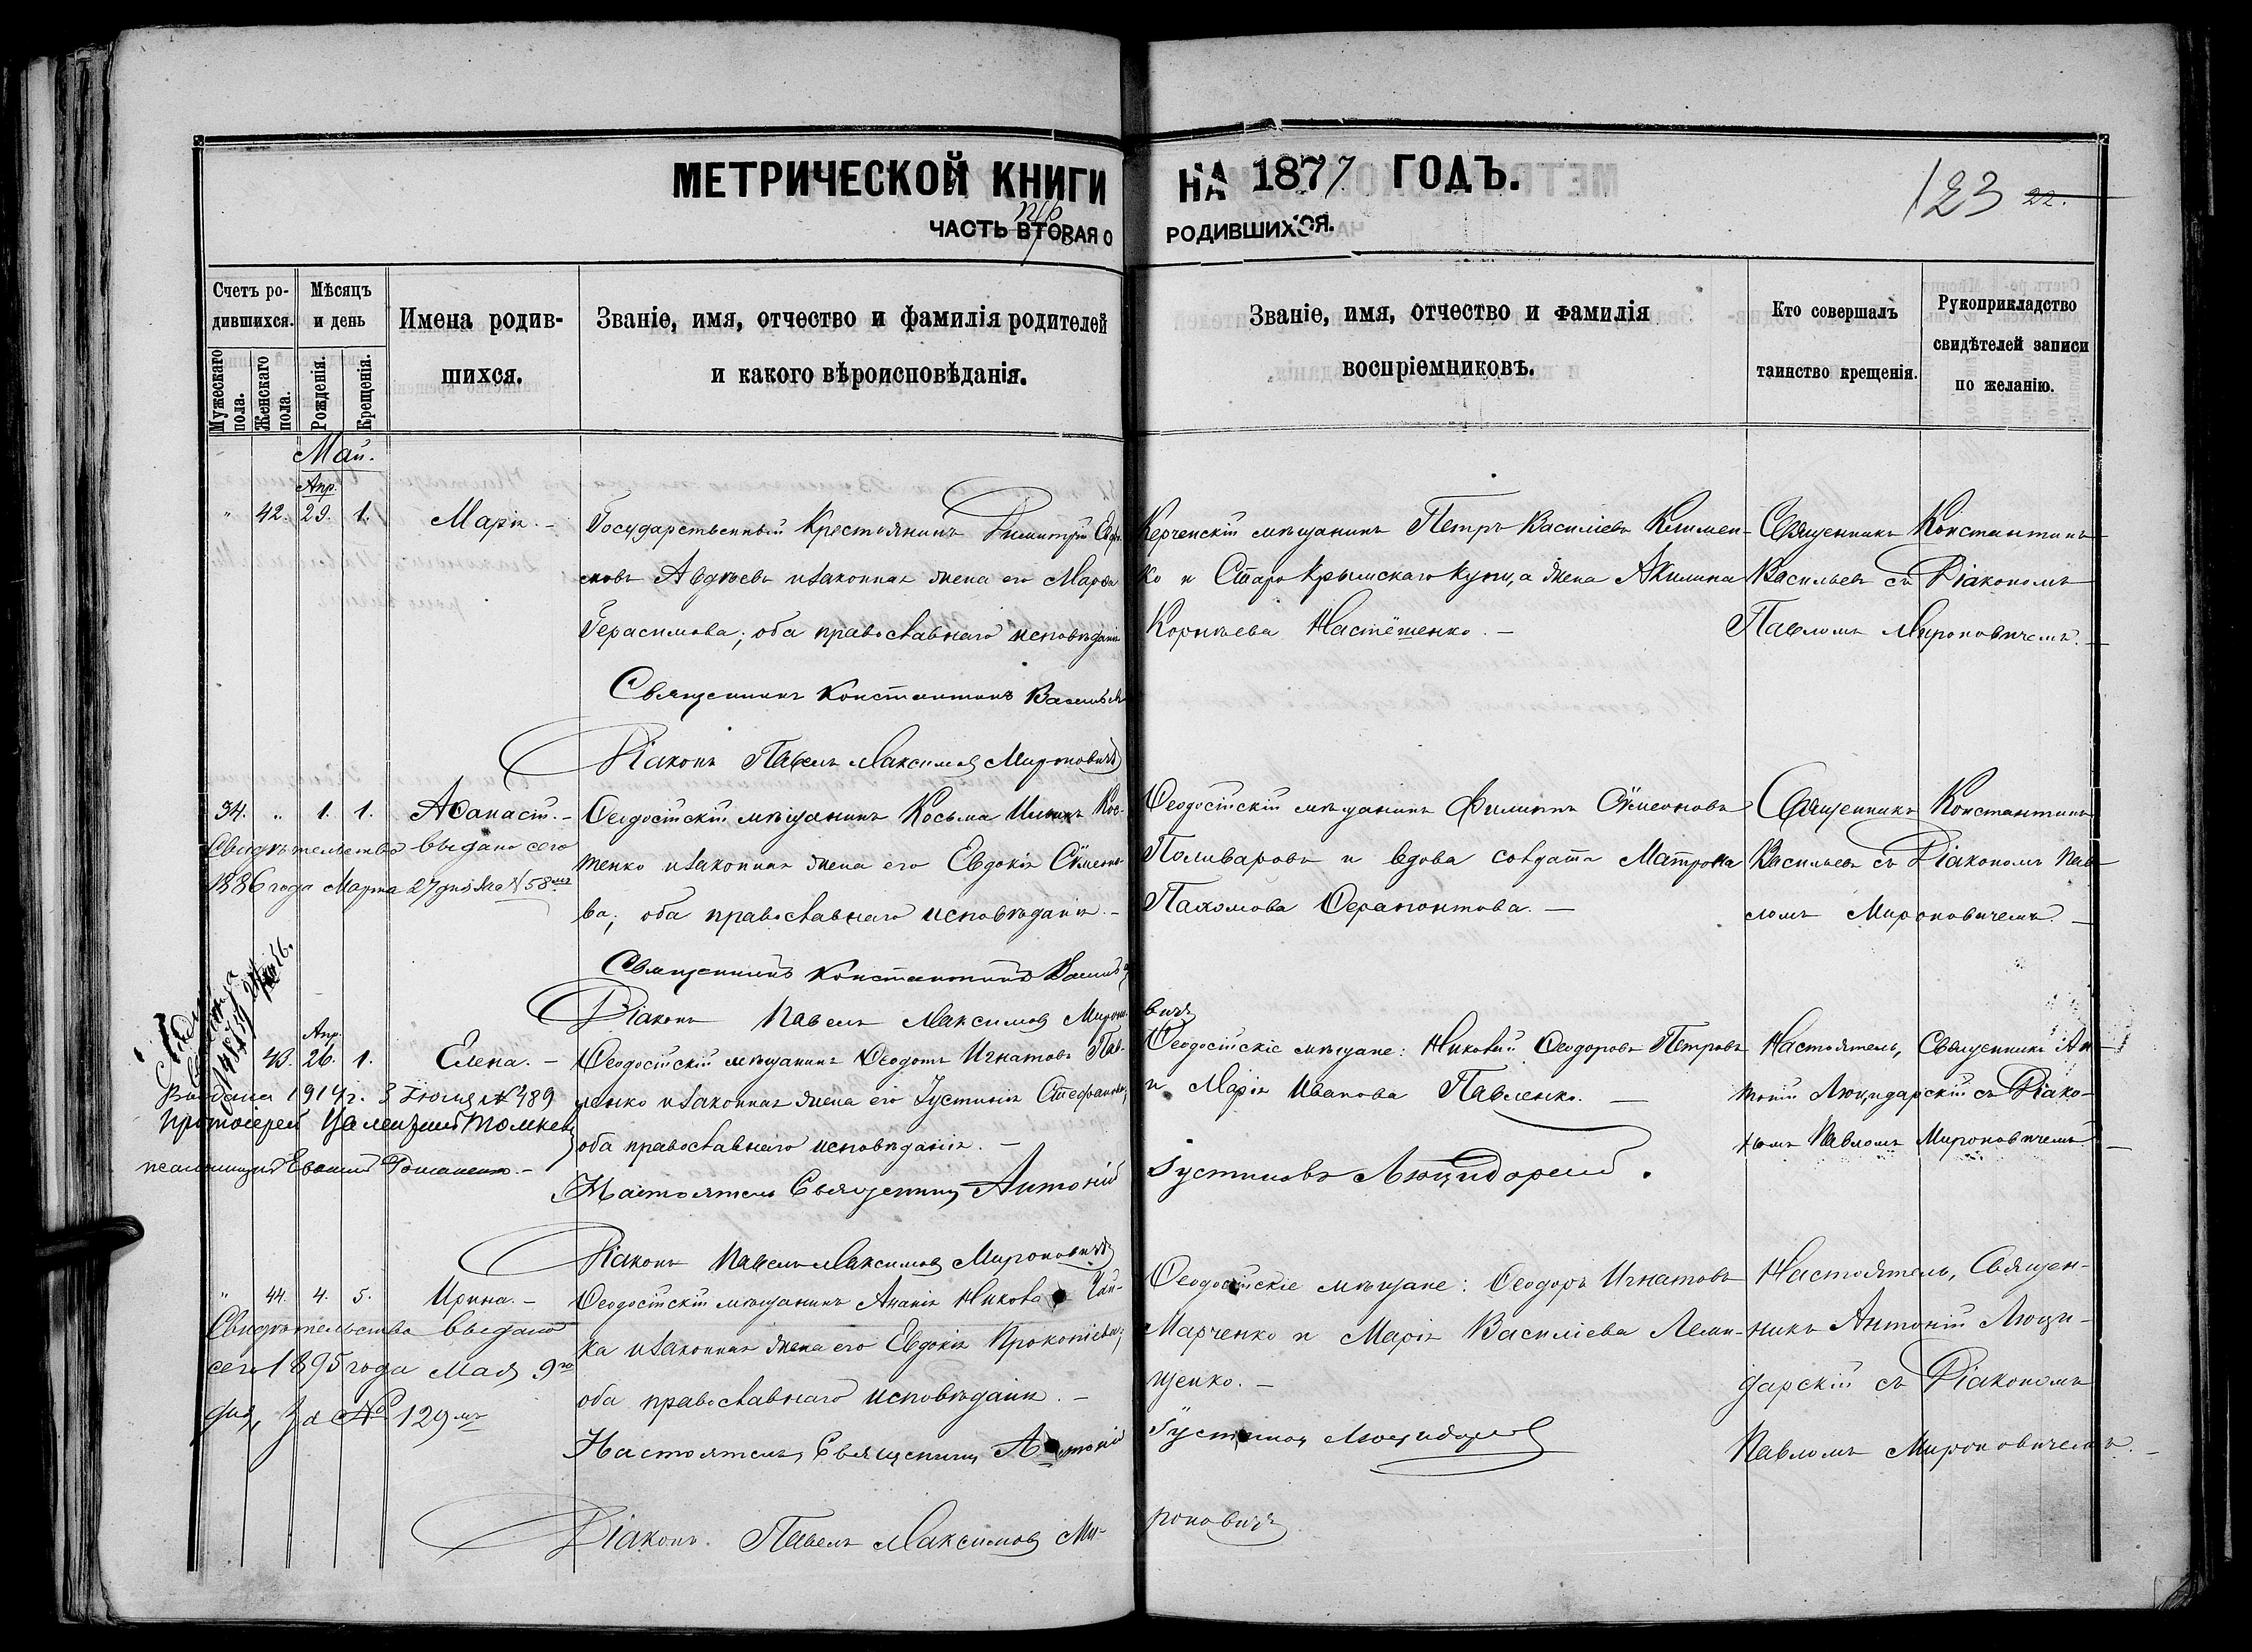 МЕТРИЧЕСКОЙ КНИГИ НА 1877 ГОДЪ.
123 22.
ЧАСТЬ ВТОРАЯ О РОДИВШИХСЯ.
Счетъ ро-
дившихся.
Мужескаго пола.
Женскаго пола.
Мѣсяцъ
и день
Рожденія.
Крещенія.
Имена родив-
шихся.
Званіе, имя, отчество и фамилія родителей
и какого вѣроисповѣданія.
Званіе, имя, отчество и фамилія
воспріемниковъ.
Кто совершалъ
таинство крещенія.
Рукоприкладство
свидѣтелей записи
по желанію.
Май.
Апр.
" 42. 29. 1. Марія. –
Государственный Крестьянинъ Димитрій
Авдѣевъ и законная жена его Марѳа
Герасимова; оба православнаго исповѣданія
Керченскій мѣщанинъ Петръ Василіевъ Климен-
ко и Старокрымскаго Купца жена Акилина
Корнѣева Настёшенко. –
Священникъ Константинъ
Васильевъ съ Діакономъ
Павломъ Мироновичемъ. –
Священникъ Константинъ Васильевъ
Діаконъ Павелъ Максимовъ Мироновичъ
34. " 1. 1. Аѳанасій. –
Ѳеодосійскій мѣщанинъ Косьма Ильинъ Кос-
тенко и законная жена его Евдокія Сѵмеоно-
ва; оба православнаго исповѣданія. –
Ѳеодосійскій мѣщанинъ Филиппъ Сѵмеоновъ
Поливаровъ и вдова солдата Матрона
Пахомова Ѳерапонтова. –
Священникъ Константинъ
Васильевъ съ Діакономъ Пав-
ломъ Мироновичемъ. –
Свидѣтельство выдано сего
1886 года Марта 27 дня за № 58мъ
Священникъ Константинъ Васильевъ
Діаконъ Павелъ Максимовъ Мироно-
вичъ
Апр.
43. 26. 1. Елена. –
Ѳеодосійскій мѣщанинъ Ѳеодотъ Игнатовъ Пав-
ленко и законная жена его Іустинія Стефанова;
оба православнаго исповѣданія. –
Ѳеодосійскіе мѣщане: Николай Ѳеодоровъ Петровъ
и Марія Иванова Павленко. –
Настоятель, Священникъ Ан-
тоній Люцидарскій съ Діако-
номъ Павломъ Мироновичемъ. –
Выдана 1914 г. 3 Іюня № 489
Протоіерей
псаломщикъ
Настоятель Священникъ Антоній
Іустиновъ Люцидарскій.
Діаконъ Павелъ Максимовъ Мироновичъ
" 44. 4. 5. Ирина. –
Ѳеодосійскій мѣщанинъ Ананія Чай-
ка и законная жена его Евдокія Прокопіева;
оба православнаго исповѣданія. –
Ѳеодосійскіе мѣщане: Ѳеодоръ Игнатовъ
Марченко и Марія Василіева Леми-
щенко. –
Настоятель, Священ-
никъ Антоній Люци-
дарскій съ Діакономъ
Павломъ Мироновичемъ. –
Свидѣтельство выдано
сего 1895 года Мая 9го
дня, за № 129мъ
Настоятель, Священникъ Антоній
Іустиновъ Люцидарскій
Діаконъ. Павелъ Максимовъ Ми-
роновичъ